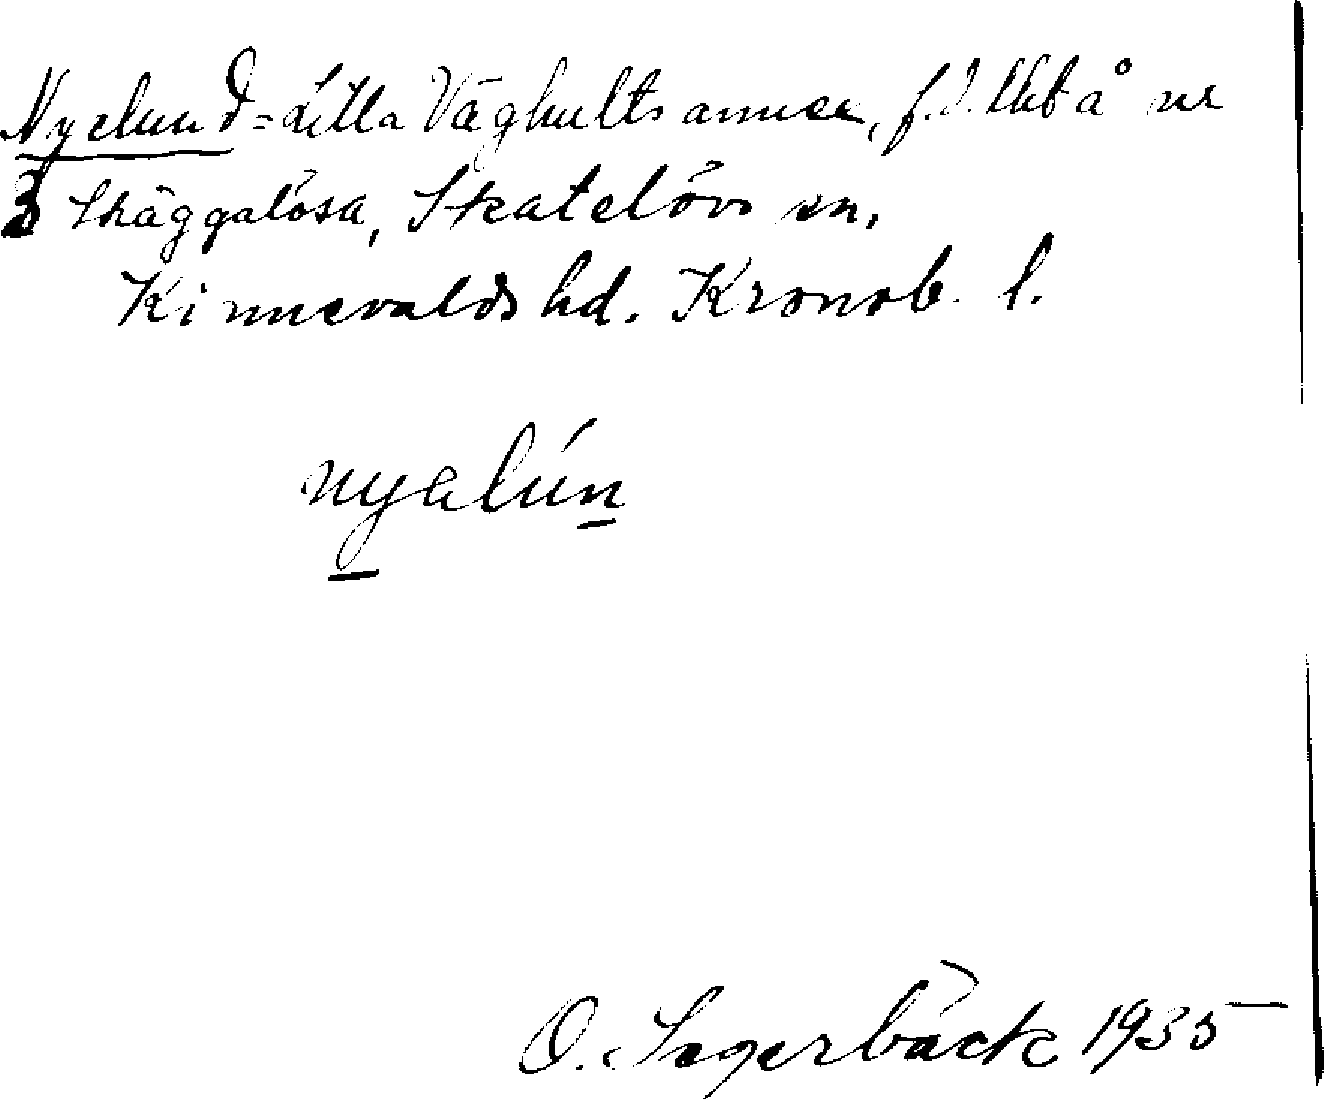 Nyelund = Lilla Väghults annex, f.d. lhb å nr
3 Skäggalösa, Skatelövs sn,
Kinnevalds hd. Kronob. l.
nyalún
O. Sagerbäck 1935